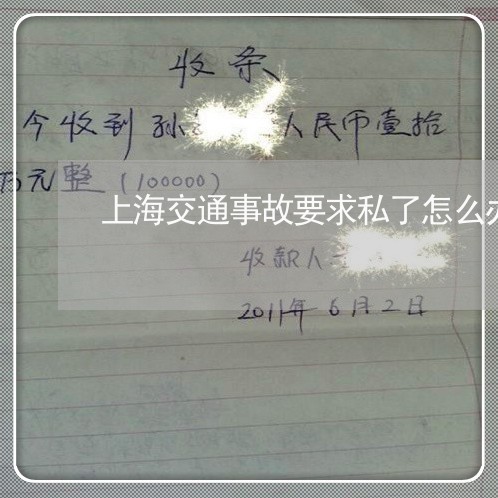 收条
今收到孙 人民币壹拾
万元整（100000）
上海交通事故要求私了怎么办
收款人
2011年6月2日